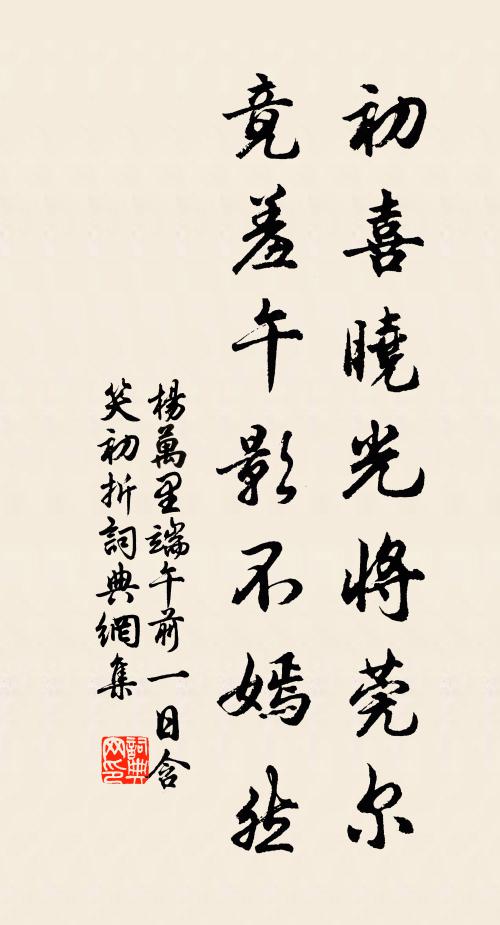 初喜曉光將莞尔
竟羞午影不嫣然
楊萬里端午前一日含
笑初折詞典網集
詞典網印